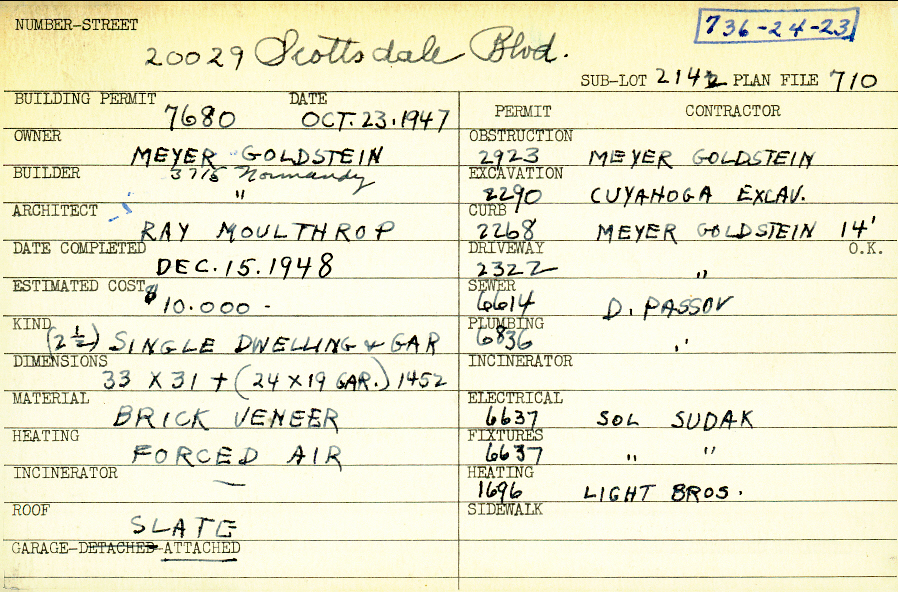 NUMBER-STREET
736-24-23
20029 Scottsdale Blvd.
SUB-LOT 2142 PLAN FILE 710
BUILDING PERMIT DATE
7680 OCT. 23. 1947
OWNER
MEYER GOLDSTEIN
BUILDER
3715 Normandy
"
ARCHITECT
RAY MOULTHROP
DATE COMPLETED
DEC. 15. 1948
ESTIMATED COST
$10.000 -
KIND
(2 1/2) SINGLE DWELLING & GAR
DIMENSIONS
33 X 31 + (24 X 19 GAR.) 1452
MATERIAL
BRICK VENEER
HEATING
FORCED AIR
INCINERATOR
—
ROOF
SLATE
GARAGE-DETACHED-ATTACHED
PERMIT CONTRACTOR
OBSTRUCTION
2923 MEYER GOLDSTEIN
EXCAVATION
2290 CUYAHOGA EXCAV.
CURB
2268 MEYER GOLDSTEIN 14'
DRIVEWAY O.K.
2322 "
SEWER
6614 D. PASSOV
PLUMBING
6836 "
INCINERATOR
ELECTRICAL
6637 SOL SUDAK
FIXTURES
6637 " "
HEATING
1696 LIGHT BROS.
SIDEWALK